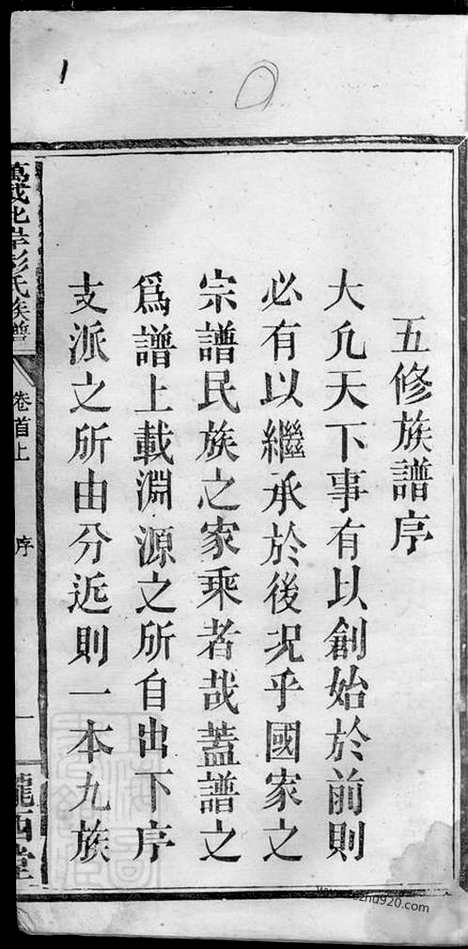 五修族譜序
大凡天下事有以創始於前則
必有以繼承於後况乎國家之
宗譜民族之家乘者哉蓋譜之
爲譜上載淵源之所自出下序
支派之所由分近則一本九族
萬載北岸彭氏族譜
卷首上
序
一
隴西堂
1